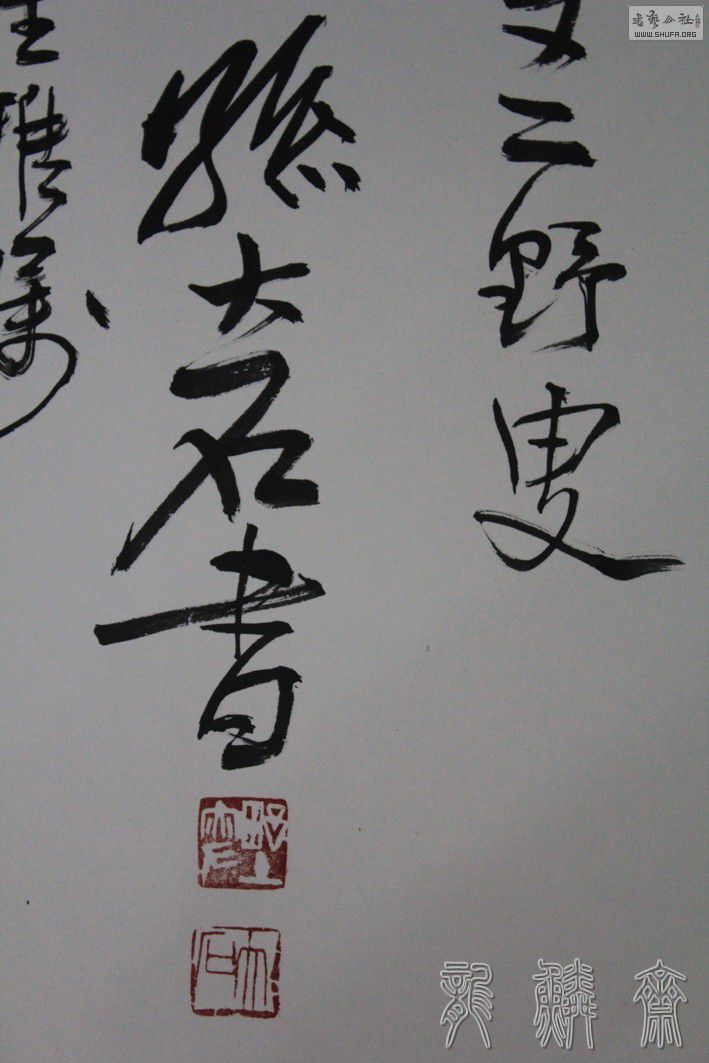 書藝公社
WWW.SHUFA.ORG
二野叟
孫大石書
大石
龍麟齋